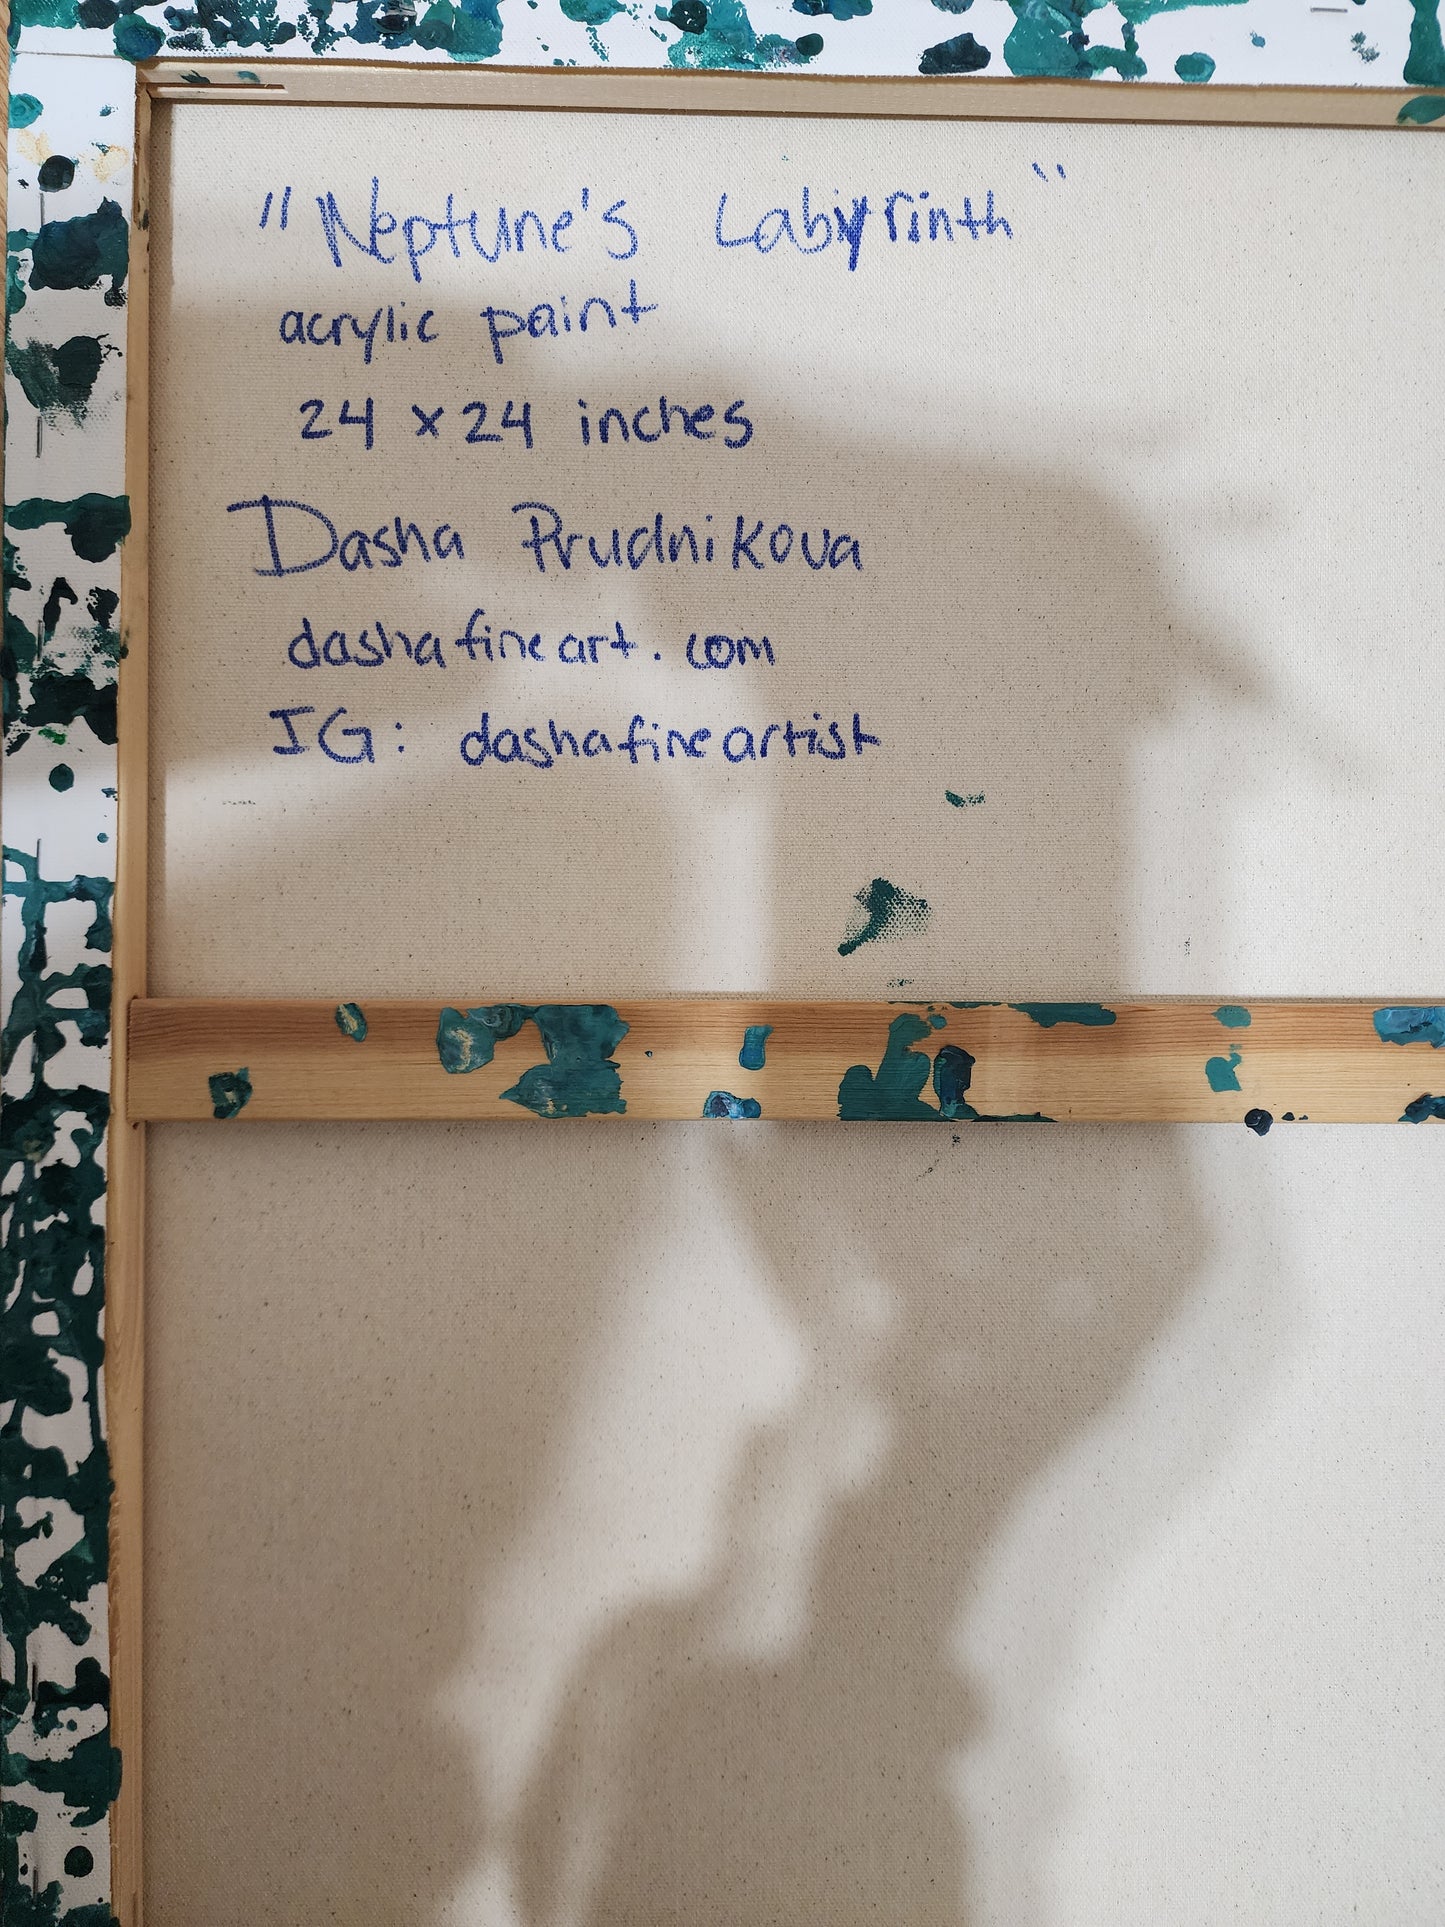 "Neptune's Labyrinth"
acrylic paint
24 x 24 inches
Dasha Prudnikova
dashafineart.com
IG: dashafineartist